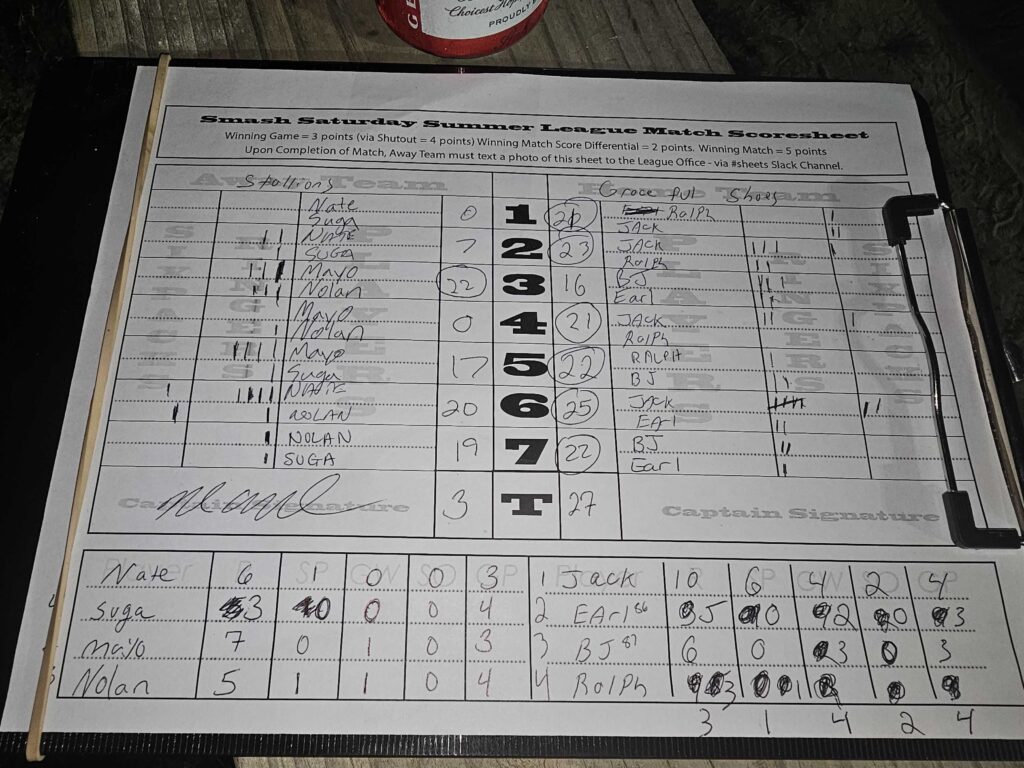 GE
Choicest Hops
PROUDLY
Smash Saturday Summer League Match Scoresheet
Winning Game = 3 points (via Shutout = 4 points) Winning Match Score Differential = 2 points. Winning Match = 5 points
Upon Completion of Match, Away Team must text a photo of this sheet to the League Office - via #sheets Slack Channel.
Away Team Home Team
Stallions Graceful Shoes
Nate 0 1 21 Ralph
Suga JACK
NATE 7 2 23 JACK
SUGA Rolph
Mayo 22 3 16 BJ
Nolan Earl
Mayo 0 4 21 JACK
Nolan Rolph
Mayo 17 5 22 RALPH
Suga BJ
NATE 20 6 25 JACK
NOLAN EArl
NOLAN 19 7 22 BJ
SUGA Earl
Captain Signature 3 T 27 Captain Signature
Player R SP GW SO GP Player R SP GW SO GP
Nate 6 1 0 0 3 1 Jack 10 6 4 2 4
Suga 3 0 0 0 4 2 EArl 86 5 0 2 0 3
mayo 7 0 1 0 3 3 BJ 87 6 0 3 0 3
Nolan 5 1 1 0 4 4 Rolph 3 1
3 1 4 2 4